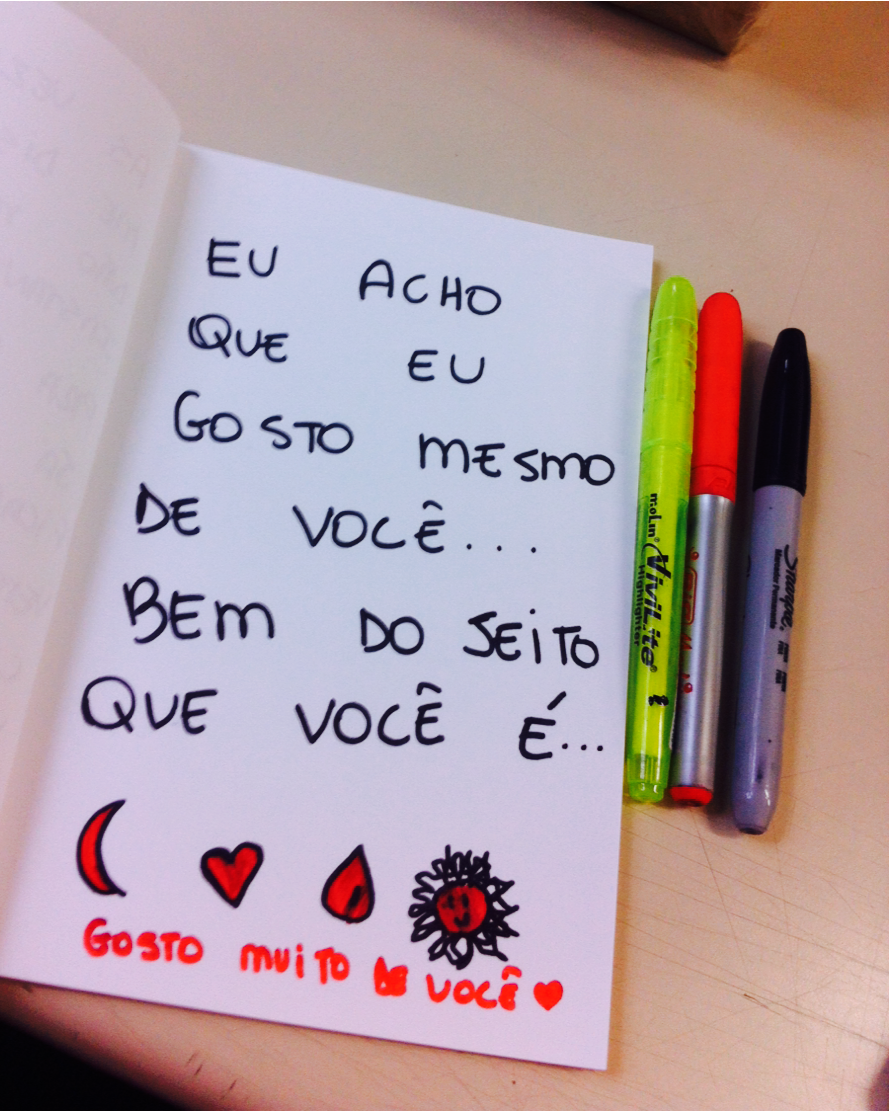 EU ACHO
QUE EU
GOSTO MESMO
DE VOCÊ...
BEM DO JEITO
QUE VOCÊ É...
GOSTO MUITO DE VOCÊ
molin® ViviLite®
Highlighter
Sharpie